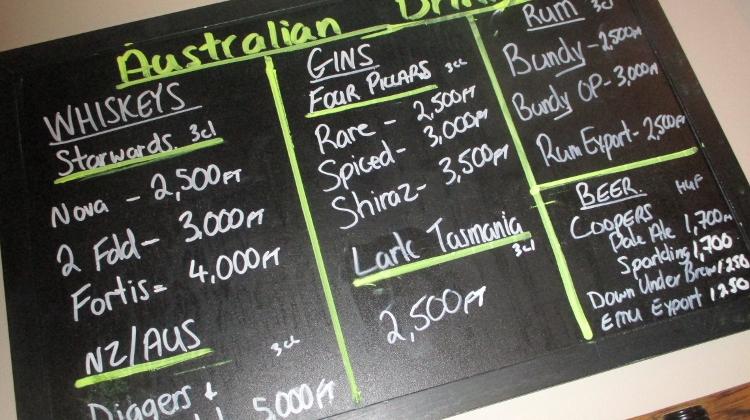 Australian
WHISKEYS
Starwards. 3cl
Nova - 2,500FT
2 Fold - 3,000FT
Fortis = 4,000FT
NZ/AUS 3cl
Diggers + 5,000FT
GINS
FOUR PILLARS 3cl
Rare - 2,500FT
Spiced - 3,000FT
Shiraz - 3,500FT
Lark Tasmania
3cl
2,500FT
Rum 3cl
Bundy - 2,500FT
Bundy OP - 3,000FT
Rum Export - 2,500FT
BEER. HUF
COOPERS
Pale Ale 1,700
Sparkling 1,700
Down Under Brew 1250
EMU Export 1250